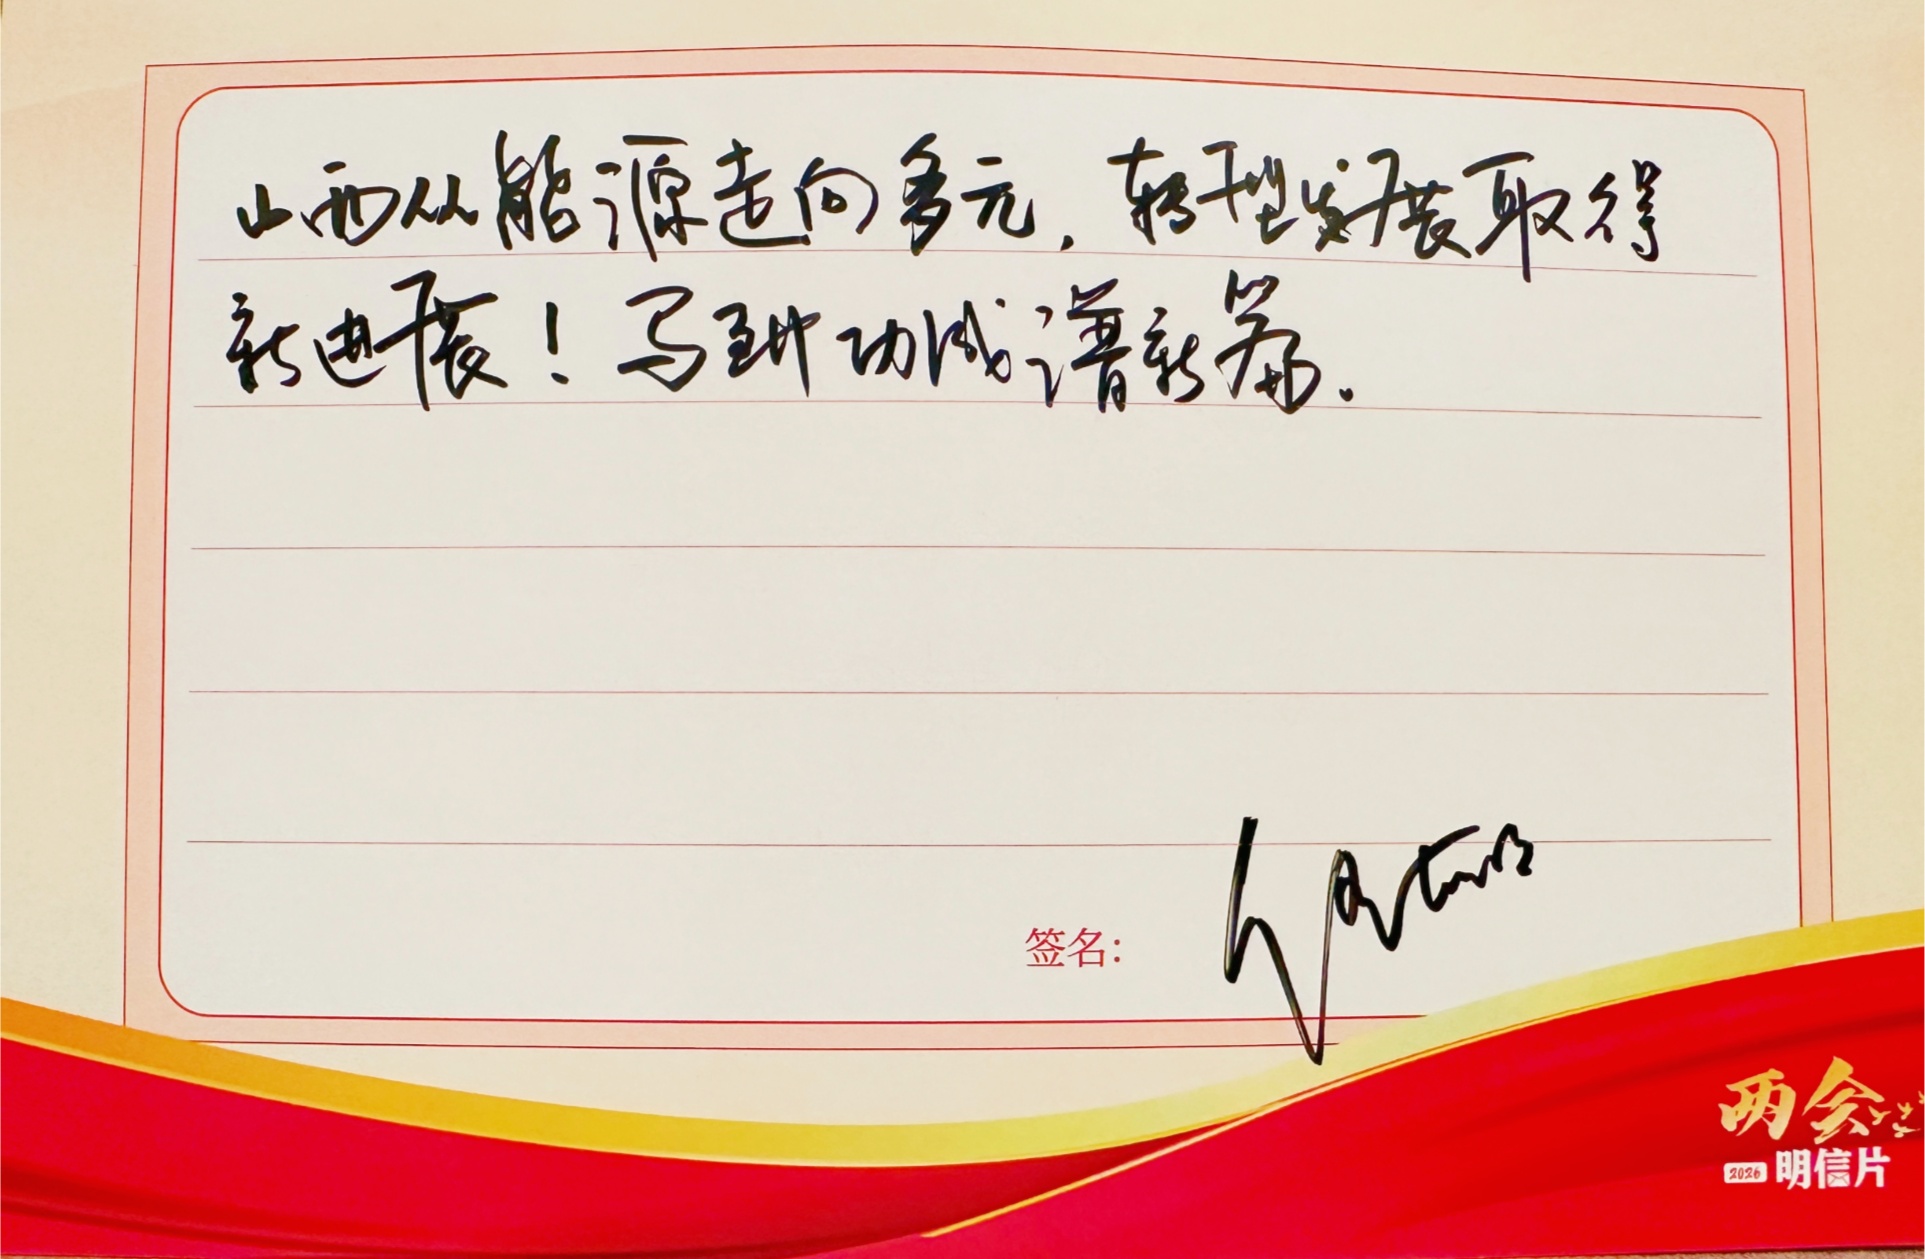 山西从能源走向多元，转型发展取得
新进展！马到功成谱新篇.
签名：
两会
2026 明信片